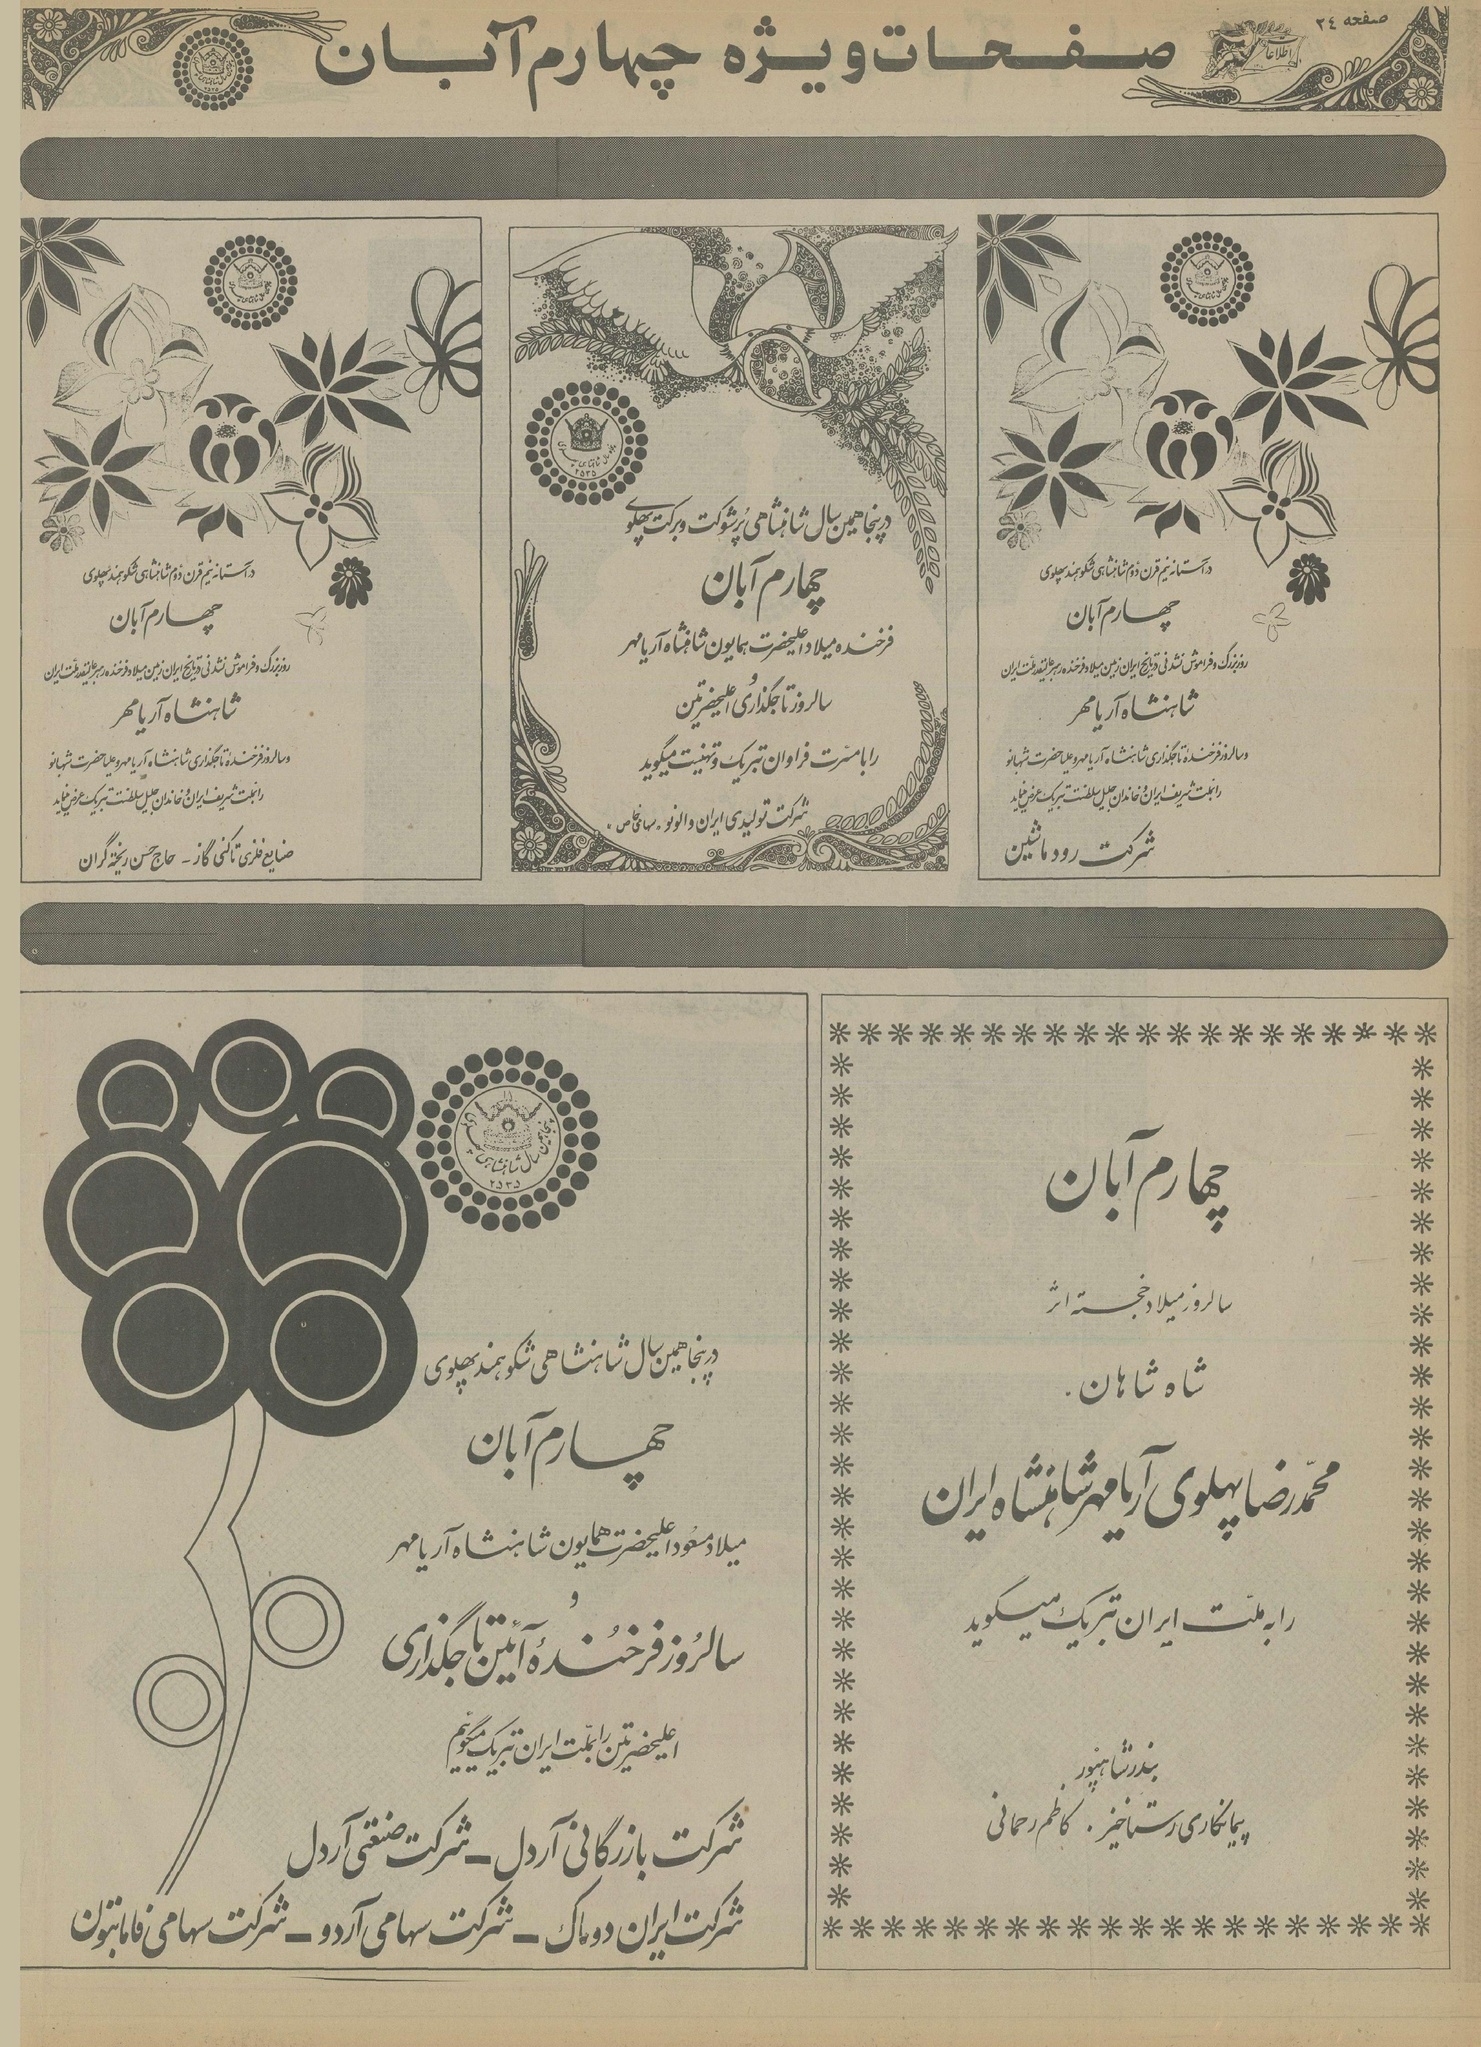 صفحه ۲۴
اطلاعات
صفحات ویژه چهارم آبان
۲۵۳۵
در آستانه نیم قرن دوم شاهنشاهی شکوهمند پهلوی
چهارم آبان
روز بزرگ و فراموش نشدنی در تاریخ ایران زمین میلاد فرخنده رهبر عالیقدر ملت ایران
شاهنشاه آریامهر
و سالروز فرخنده تاجگذاری شاهنشاه آریامهر و علیاحضرت شهبانو
را بملت شریف ایران و خاندان جلیل سلطنت تبریک عرض مینماید
شرکت رود ماشین
۲۵۳۵
در پنجاهمین سال شاهنشاهی پرشوکت و برکت پهلوی
چهارم آبان
فرخنده میلاد اعلیحضرت همایون شاهنشاه آریامهر
و
سالروز تاجگذاری اعلیحضرتین
را با مسرت فراوان تبریک و تهنیت میگوید
شرکت تولیدی ایران والونو . سهامی خاص .
در آستانه نیم قرن دوم شاهنشاهی شکوهمند پهلوی
چهارم آبان
روز بزرگ و فراموش نشدنی در تاریخ ایران زمین میلاد فرخنده رهبر عالیقدر ملت ایران
شاهنشاه آریامهر
و سالروز فرخنده تاجگذاری شاهنشاه آریامهر و علیاحضرت شهبانو
را بملت شریف ایران و خاندان جلیل سلطنت تبریک عرض مینماید
صنایع فلزی تاکنی گاز - حاج حسن ریخته گران
چهارم آبان
سالروز میلاد خجسته اثر
شاه شاهان .
محمدرضا پهلوی آریامهر شاهنشاه ایران
را به ملت ایران تبریک میگوید
بندر شاهپور
پیمانکاری رستاخیز . کاظم رحمانی
پنجاهمین سال شاهنشاهی پهلوی
۲۵۳۵
در پنجاهمین سال شاهنشاهی شکوهمند پهلوی
چهارم آبان
میلاد مسعود اعلیحضرت همایون شاهنشاه آریامهر
و
سالروز فرخندهٔ آئین تاجگذاری
اعلیحضرتین را بملت ایران تبریک میگوئیم
شرکت بازرگانی آردل - شرکت صنعتی آردل
شرکت ایران دوماک - شرکت سهامی آردو - شرکت سهامی فاما بتون